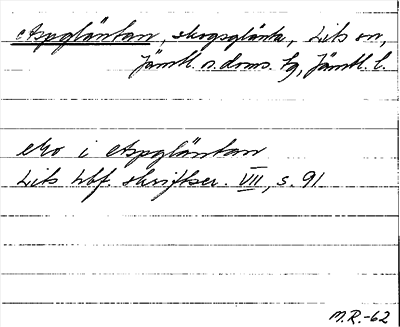 Aspgläntan, skogsglänta, Lits sn,
Jämtl. n. doms. tg, Jämtl. l.
Mo i Aspgläntan
Lits hbf. skriftser. VII, s. 91
M.R.-62